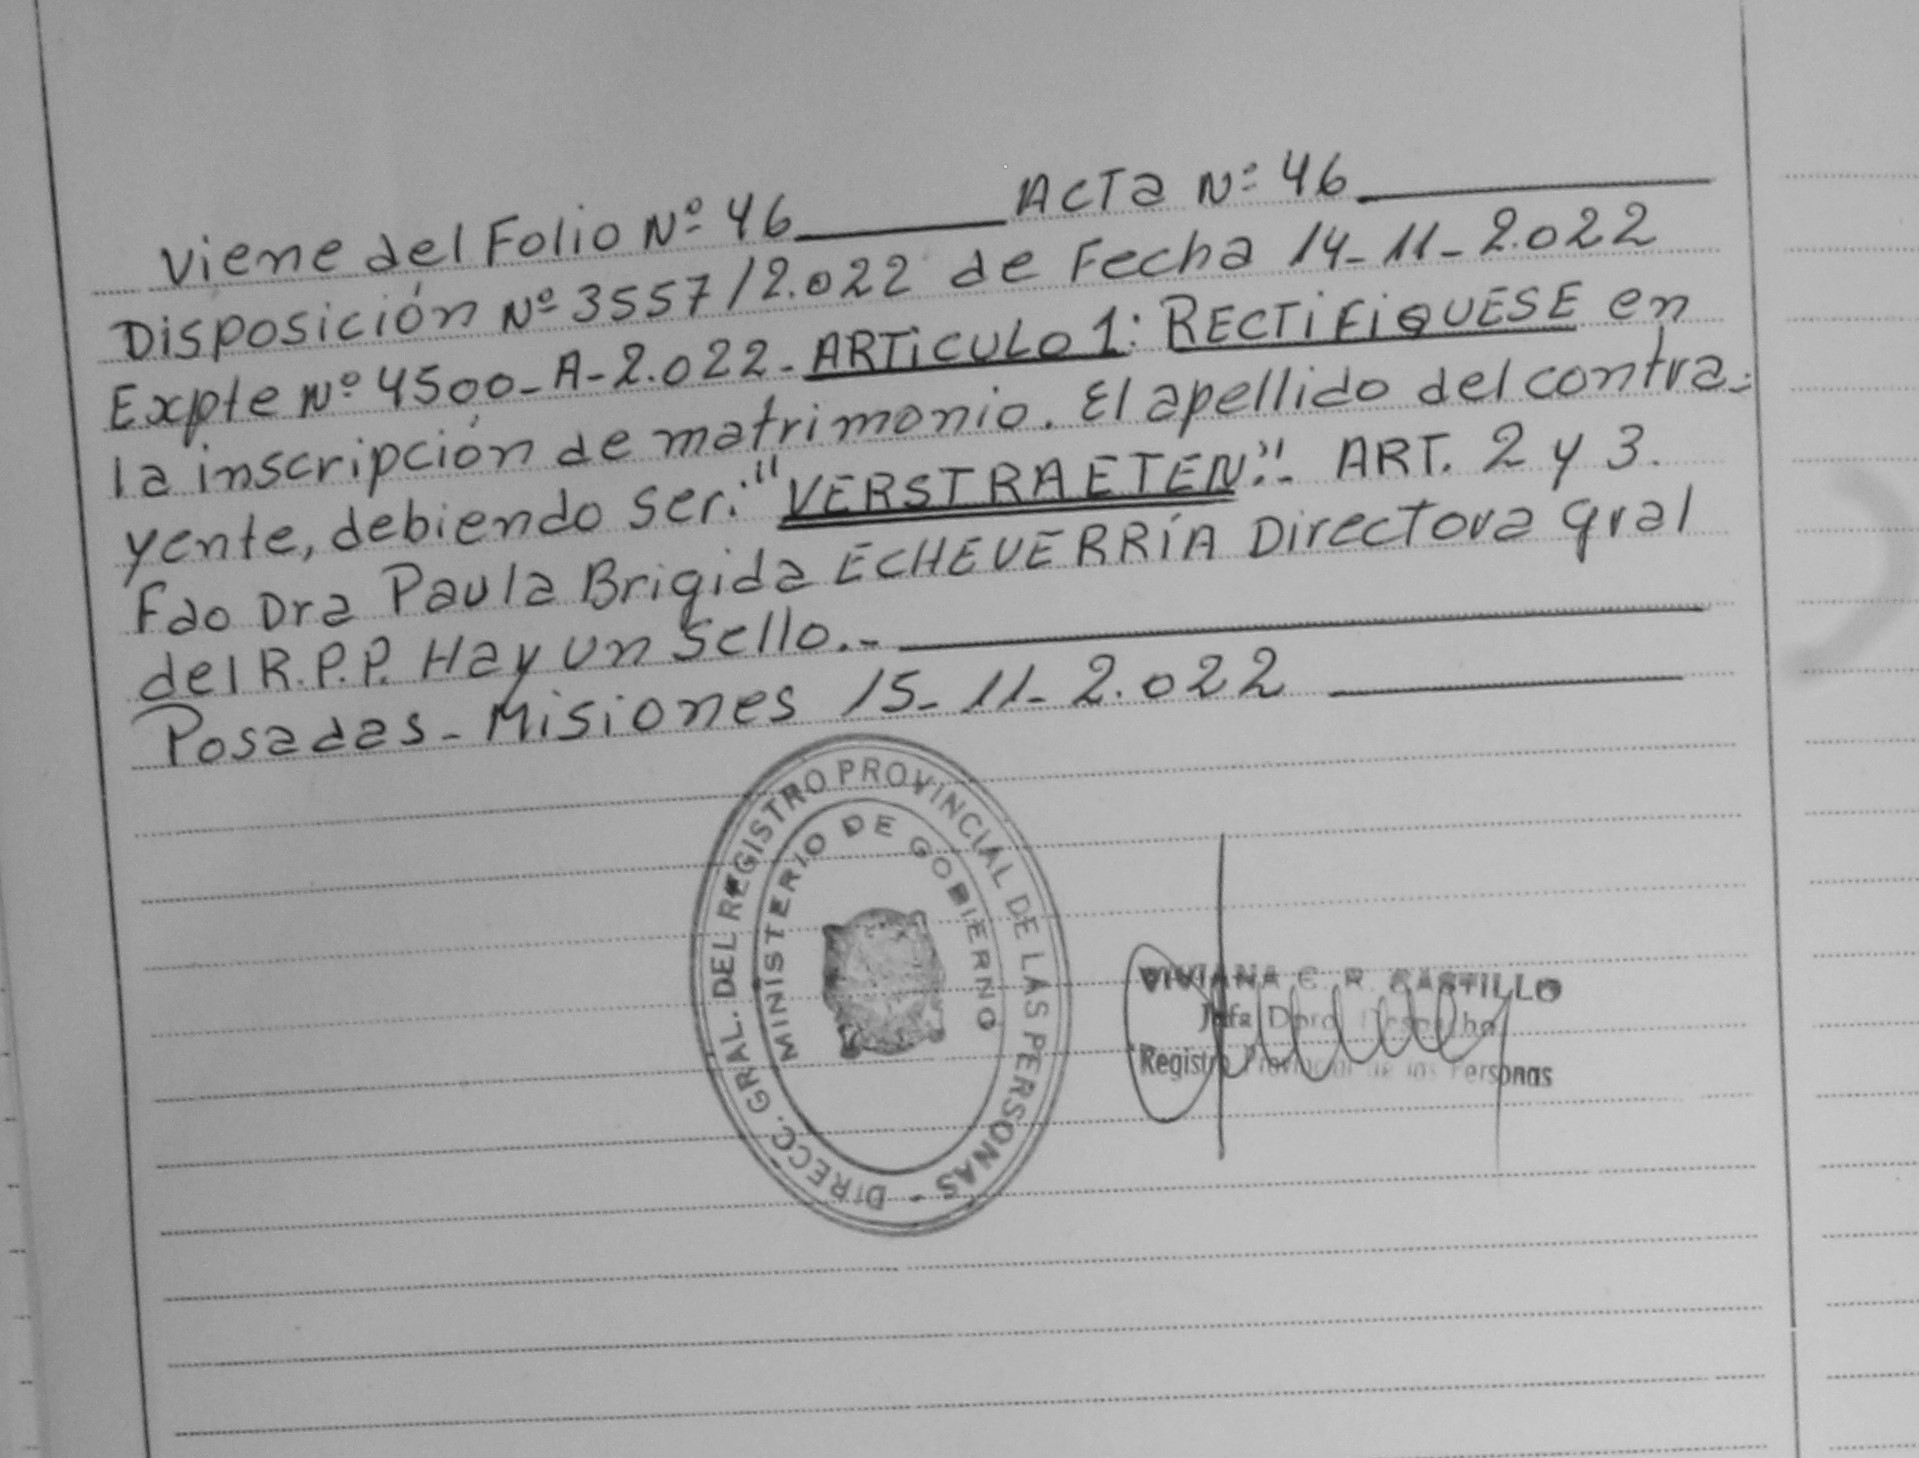 Viene del Folio Nº 46 ACTA Nº 46
Disposición Nº 3557/2.022 de Fecha 14-11-2.022
Expte Nº 4500-A-2.022-ARTICULO 1: RECTIFIQUESE en
la inscripción de matrimonio. El apellido del contra-
yente, debiendo ser: "VERSTRAETEN".- ART. 2 y 3.
Fdo Dra Paula Brigida ECHEVERRÍA Directora gral
del R.P.P. Hay un Sello.-
Posadas-Misiones 15-11-2.022
DIRECC. GRAL. DEL REGISTRO PROVINCIAL DE LAS PERSONAS -
MINISTERIO DE GOBIERNO
VIVIANA C. R. CASTILLO
Jefa Dpto. Despacho
Registro Provincial de las Personas